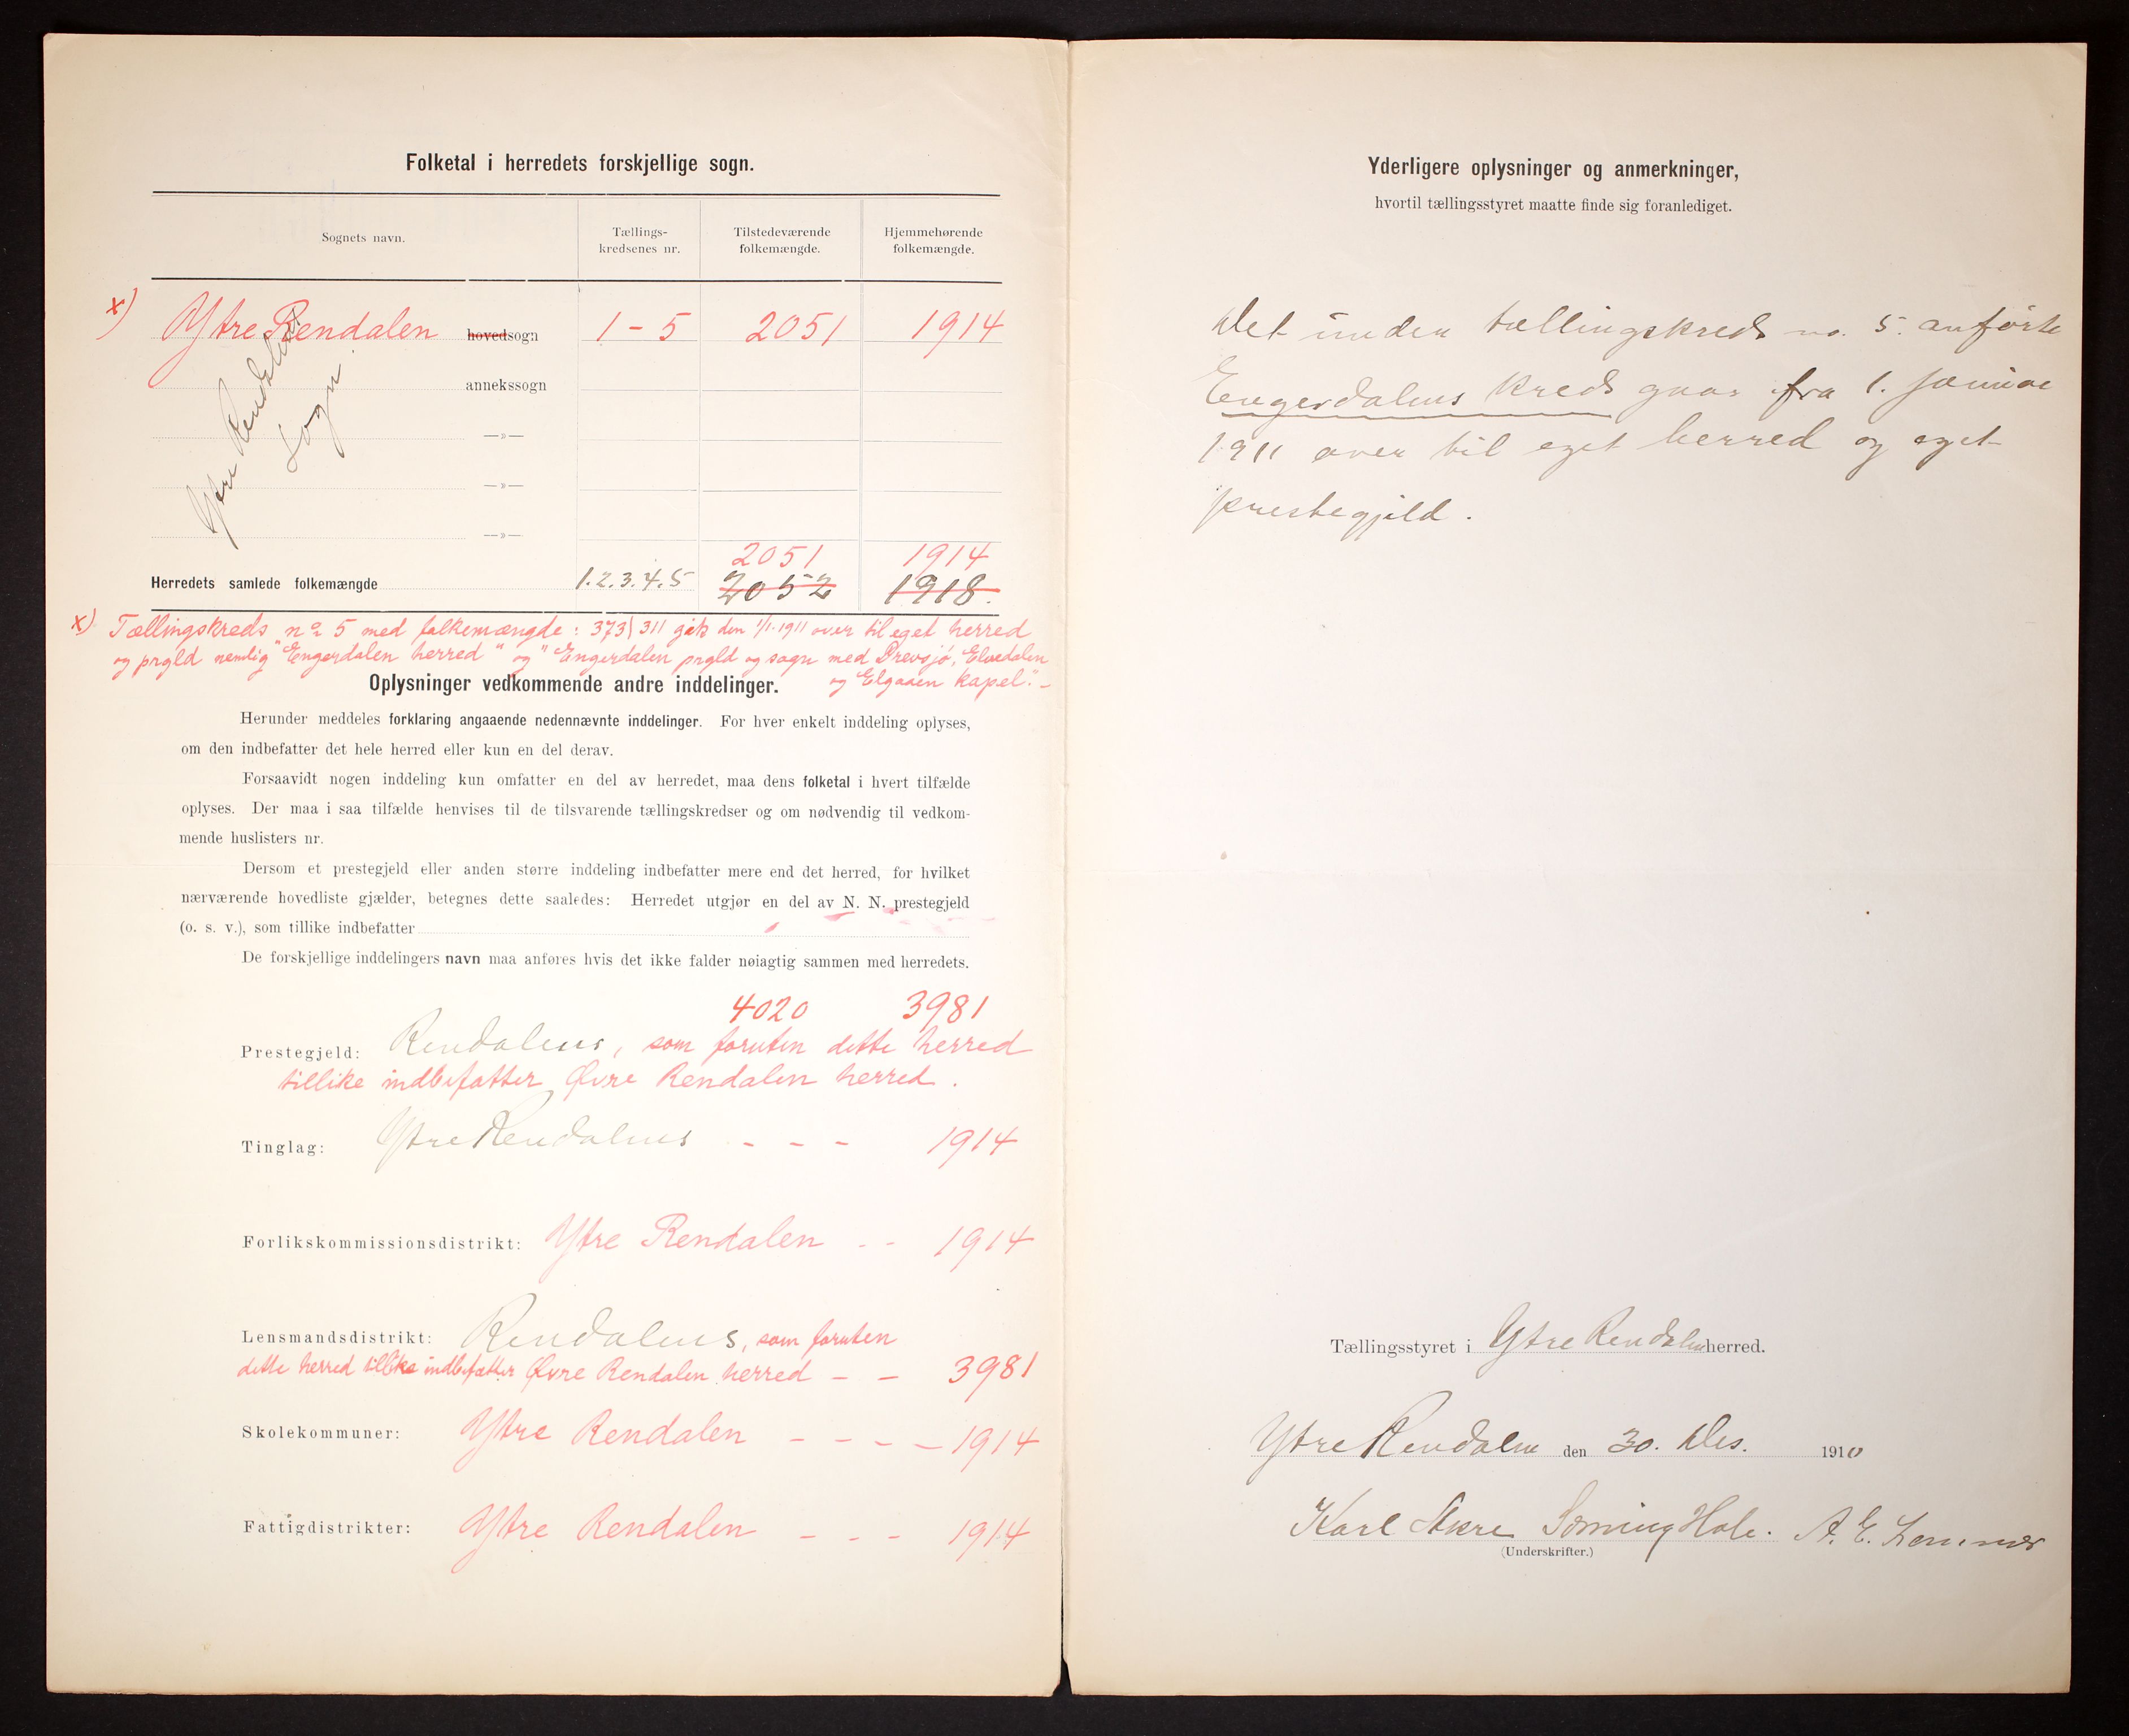 Folketal i herredets forskjellige sogn.
Sognets navn.
Tællings-
kredsenes nr.
Tilstedeværende
folkemængde.
Hjemmehørende
folkemængde.
x) Ytre Rendalen hovedsogn 1-5 2051 1914
annekssogn
Ytre Rendalens
Sogn
—»—
—»—
—»—
2051 1914
Herredets samlede folkemængde 1.2.3.4.5 2052 1918.
x) Tællingskreds no 5 med folkemængde: 373/311 gik den 1/1-1911 over til eget herred
og prgld nemlig "Engerdalen herred" og "Engerdalen prgld og sogn med Drevsjø, Elvedalen
og Elgaaen kapel."—
Oplysninger vedkommende andre inddelinger.
Herunder meddeles forklaring angaaende nedennævnte inddelinger. For hver enkelt inddeling oplyses,
om den indbefatter det hele herred eller kun en del derav.
Forsaavidt nogen inddeling kun omfatter en del av herredet, maa dens folketal i hvert tilfælde
oplyses. Der maa i saa tilfælde henvises til de tilsvarende tællingskredser og om nødvendig til vedkom-
mende huslisters nr.
Dersom et prestegjeld eller anden større inddeling indbefatter mere end det herred, for hvilket
nærværende hovedliste gjælder, betegnes dette saaledes: Herredet utgjør en del av N. N. prestegjeld
(o. s. v.), som tillike indbefatter
De forskjellige inddelingers navn maa anføres hvis det ikke falder nøiagtig sammen med herredets.
4020 3981
Prestegjeld: Rendalens, som foruten dette herred
tillike indbefatter Øvre Rendalen herred.
Tinglag: Ytre Rendalens - - - 1914
Forlikskommissionsdistrikt: Ytre Rendalen - - 1914
Lensmandsdistrikt: Rendalens, som foruten
dette herred tillike indbefatter Øvre Rendalen herred - - 3981
Skolekommuner: Ytre Rendalen - - - - 1914
Fattigdistrikter: Ytre Rendalen - - - 1914
Yderligere oplysninger og anmerkninger,
hvortil tællingsstyret maatte finde sig foranlediget.
Det under tællingskreds no. 5. anførte
Engerdalens kreds gaar fra 1. januar
1911 over til eget herred og eget
prestegjeld.
Tællingsstyret i Ytre Rendalen herred.
Ytre Rendalen den 30. Des. 1910
Karl Akre Hole. A. E.
(Underskrifter.)